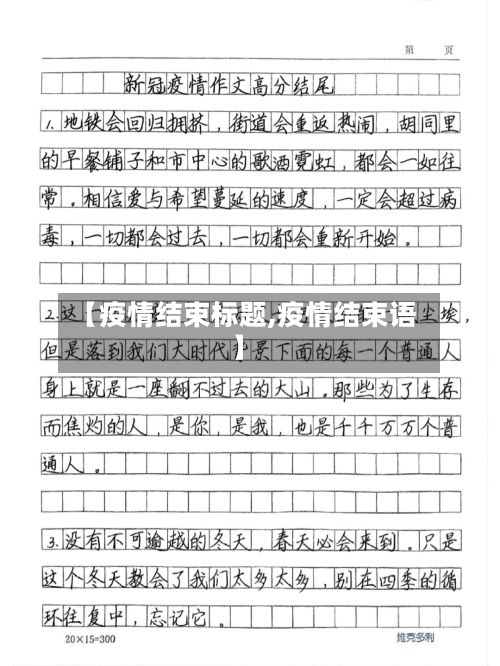 第 页
新冠疫情作文高分结尾
1.地铁会回归拥挤，街道会重返热闹，胡同里
的早餐铺子和市中心的歌酒霓虹，都会一如往
常。相信爱与希望蔓延的速度，一定会超过病
毒，一切都会过去，一切都会重新开始。
2.这 尘埃，
【疫情结束标题,疫情结束语
】
但是落到我们大时代背景下面的每一个普通人
身上就是一座翻不过去的大山。那些为了生存
而焦灼的人，是你，是我，也是千千万万个普
通人。
3.没有不可逾越的冬天，春天必会来到。只是
这个冬天教会了我们太多太多，别在四季的循
环往复中，忘记它。
20×15=300 维克多利